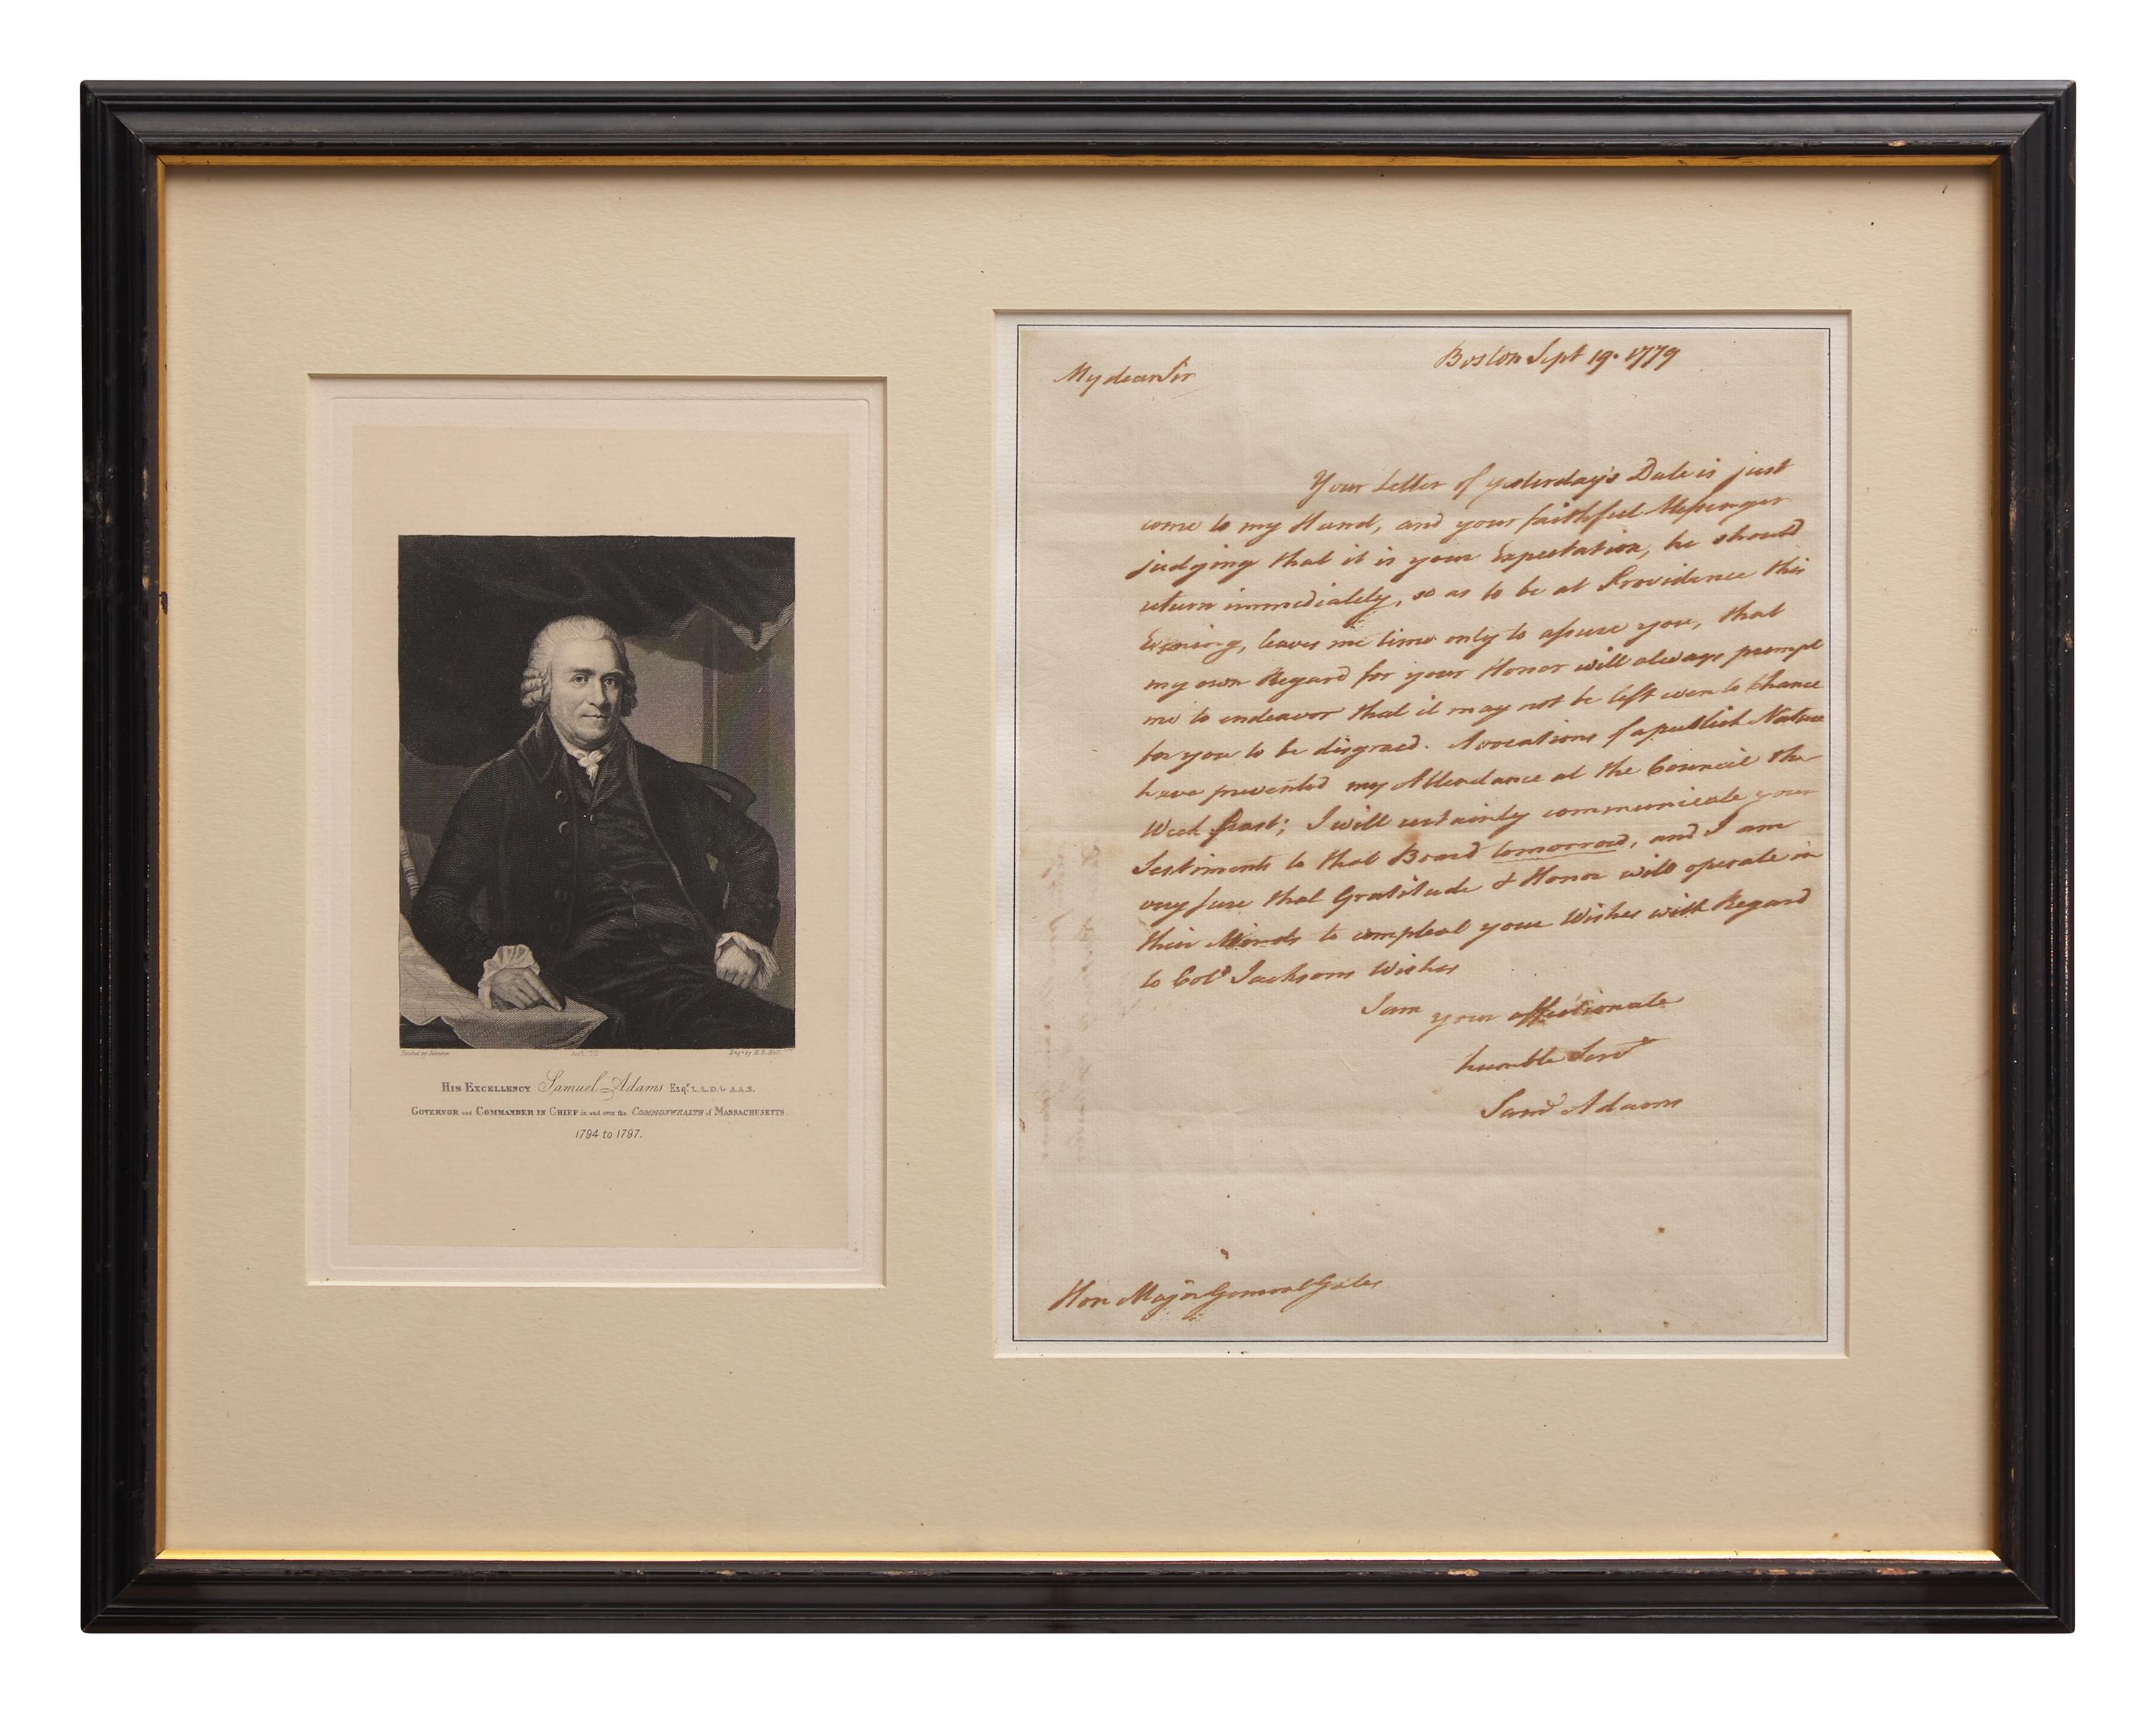 Painted by Johnston
Engd by H.B. Hall
HIS EXCELLENCY Samuel Adams Esqr. L.L.D. & A.A.S.
GOVERNOR and COMMANDER IN CHIEF in and over the COMMONWEALTH of MASSACHUSETTS.
1794 to 1797.
Boston Sept 19. 1779
My dear Sir
Your Letter of yesterday's Date is just
come to my Hand, and your faithful Messenger
judging that it is your Expectation, he should
return immediately, so as to be at Providence this
Evening, leaves me time only to assure you, that
my own Regard for your Honor will always prompt
me to endeavor that it may not be left even to Chance
for you to be disgracd. Avocations of a publick Nature
have prevented my Attendance at the Council the
Week past; I will certainly communicate your
Sentiments to that Board tomorrow, and I am
very sure that Gratitude & Honor will operate in
their Minds to compleat your Wishes with Regard
to Colo Jacksons Wishes
I am your affectionate
humble Servt
Saml Adams
Hon Major General Gates